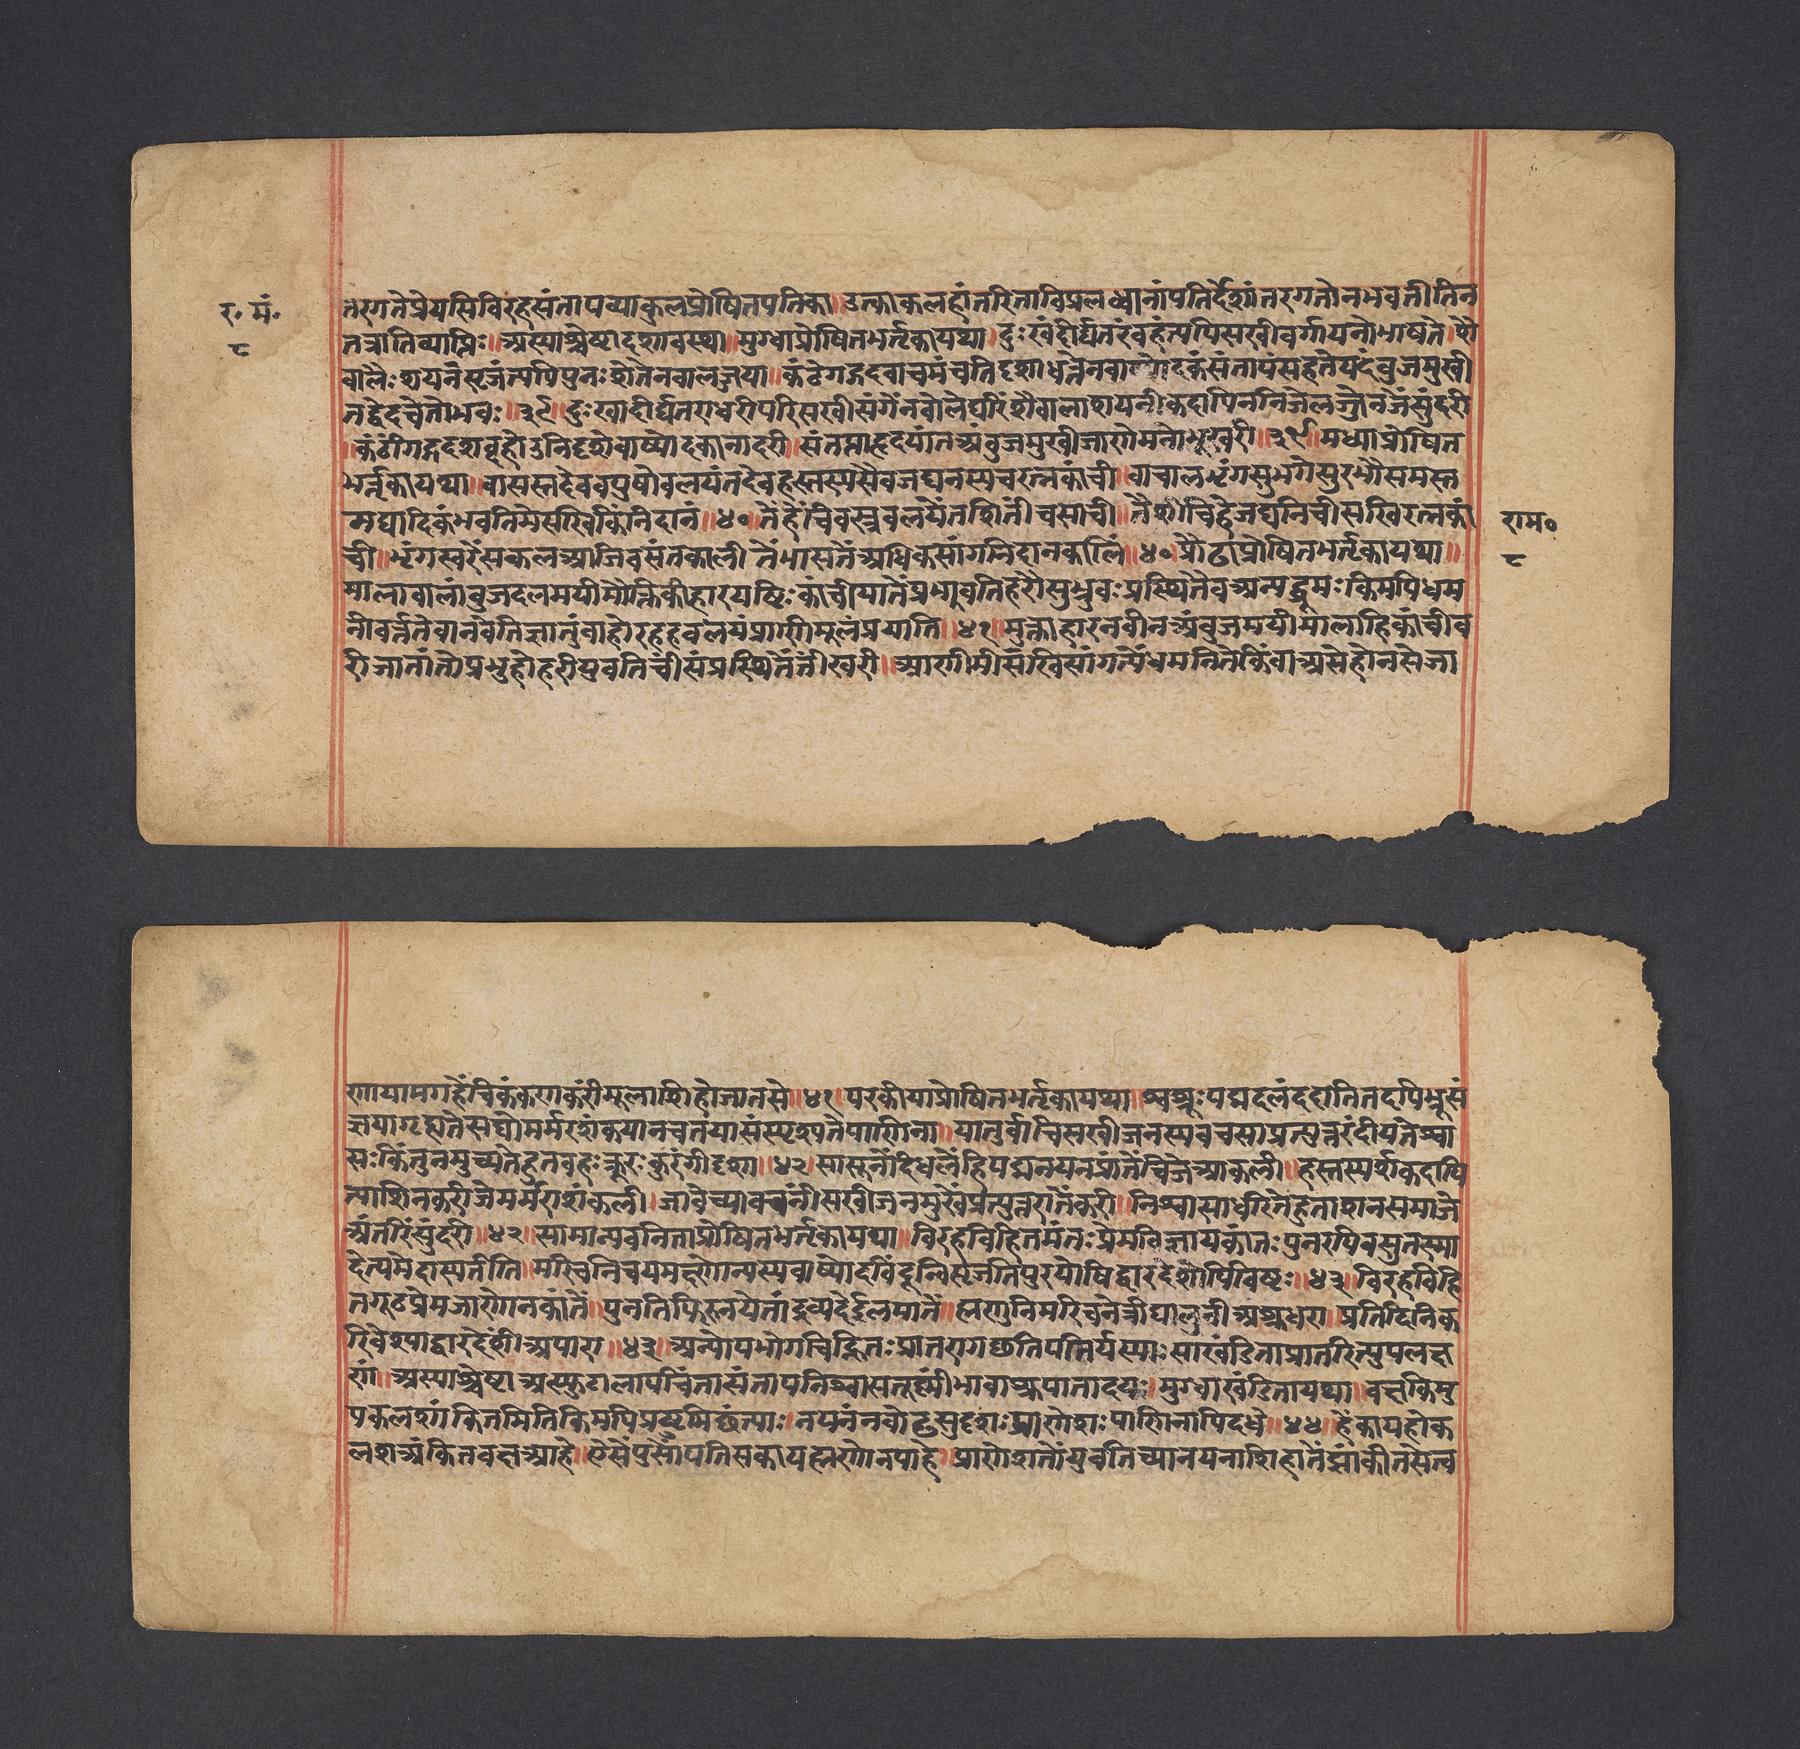 र. मं.
८
तरगतेप्रेयसिविरहसंतापव्याकुलप्रोषितपतिका॥उत्काकलहांतरिताविप्रलब्धानांपतिर्देशांतरगतोनभवतीतिन
तत्रातिव्याप्तिः॥अस्याश्चेष्टादशावस्था॥मुग्धाप्रोषितभर्तृकायथा॥दुःखंदीर्घतरंवहंत्यपिसखीवर्गायनोभाषते॥शै
वालैःशयनंसृजंत्यपिपुनःशेतेनवालज्जया॥कंठेगद्गदवाचमंचतिदृशाधत्तेनबाष्पोदकंसंतापंसहतेयदंबुजमुखी
तद्वेदचेतोभवः॥३९॥दुःखादीर्घतराधरीपरिसखीसंगेंनबोलेघरिंशैवालाशयनीकदापिननिजेलज्जेनजेंसुंदरी
॥कंठींगद्गदशब्दहोउनिदृशेबाष्पोदकानादरी॥संतप्ताहृदयांतअंबुजमुखीजाणेमनोभूखरी॥३९॥मध्याप्रोषित
भर्तृकायथा॥वासस्तदेववपुषोवलयंतदेवहस्तस्यसैवजघनस्यचरत्नकांची॥वाचालभृंगसुभगेसुरभौसमस्त
मद्याधिकंभवतिमेसखिकिंनिदानं॥४०॥तेंहेंचिवस्त्रवलयेंतशिंतींचसाची॥तैशीचिहेजघनिचीसखिरत्नकां
ची॥भृंगस्वरेंसकलआजिवसंतकाली तेंभासतेंअधिकसांगनिदानकालिं॥४०॥प्रौढाप्रोषितभर्तृकायथा॥
मालाबालांबुजदलमयीमौक्तिकीहारयष्टिःकांचीयातेप्रभवतिहरौसुभ्रुवःप्रस्थितैवअन्यद्ब्रूमःकिमपिधम
नीवर्ततेवानवेतिज्ञातुंबाहोरहहवलयंप्राणीमूलंप्रयाति॥४१॥मुक्ताहारनवीनअंबुजमयीमालाहिकांचीव
री जातांतोप्रभुहोहरीयुवतिचींसंप्रस्थितेंतींखरी॥आणीमीसखिसांगत्येंधमनितेकिंवाअसेहोनसेजा
राम०
८
णायामगहेंचिकंकणकरींमूलाशिहोज्यातसे॥४१॥परकीयाप्रोषितभर्तृकायथा॥श्वश्रूःपद्मदलंददातितदपिभ्रूसं
ज्ञयागृह्यतेसद्योमर्मरशंकयानचतयासंस्पृश्यतेपाणिना॥यातुर्वाचिसखीजनस्यवचसाप्रत्युत्तरंदीयतेश्वा
सःकिंतुनमुच्यतेहुतवहःक्रूरःकुरंगीदृशा॥४२॥सासूनेंदिधलेंहिपद्मनयनप्रांतेंचिजेआकली॥हस्तस्पर्शकदापि
त्याशिनकरीजेमर्मराशंकली।जावेच्यावचनींसखीजनमुखेंप्रत्युत्तरातेंकरी॥निश्वासाधरितेहुताशनसमाजे
अंतरिंसुंदरी॥४२॥सामान्यवनिताप्रोषितभर्तृकायथा॥विरहविहितमंतःप्रेमविज्ञायकांतःपुनरपिवसुतस्मा
देत्यमेदास्यतीति॥मरिचनिचयमक्ष्णोन्यस्यबाष्पोदबिंदून्विसृजतिपुरयोषिद्द्वारदेशोपविष्टा॥४३॥विरहविहि
तगूढप्रेमजाणोनकांतें॥पुनतिफिरुनयेतांद्रव्यदेईलमातें॥ह्मणुनिमरिचनेत्रींघालुनीअश्रुधरा॥प्रतिदिनिक
रिवेश्याद्वारदेशीं॥अपारा॥४३॥अन्योपभोगचिह्नितःप्रातरागछतिपतिर्यस्याःसाखंडिताप्रातरित्युपलक्ष
णं॥अस्याश्चेष्टाअस्फुटालापचिंतासंतापनिश्वासतूष्णींभावाश्रुपातादयः॥मुग्धाखंडितायथा॥वक्षःकिमु
पकलशांकितमितिकिमपिप्रष्टुमिछंत्याः॥नयनंनवोढसुदृशःप्राणेशःपाणिनापिदधे॥४४॥हेंकायहोक
लशअंकितवक्षआहे॥ऐसेंपुसोंपतिसकायह्मणोनपाहे॥प्राणेशतोयुवतिच्यानयनाशिहातेंझांकीतसेत्व